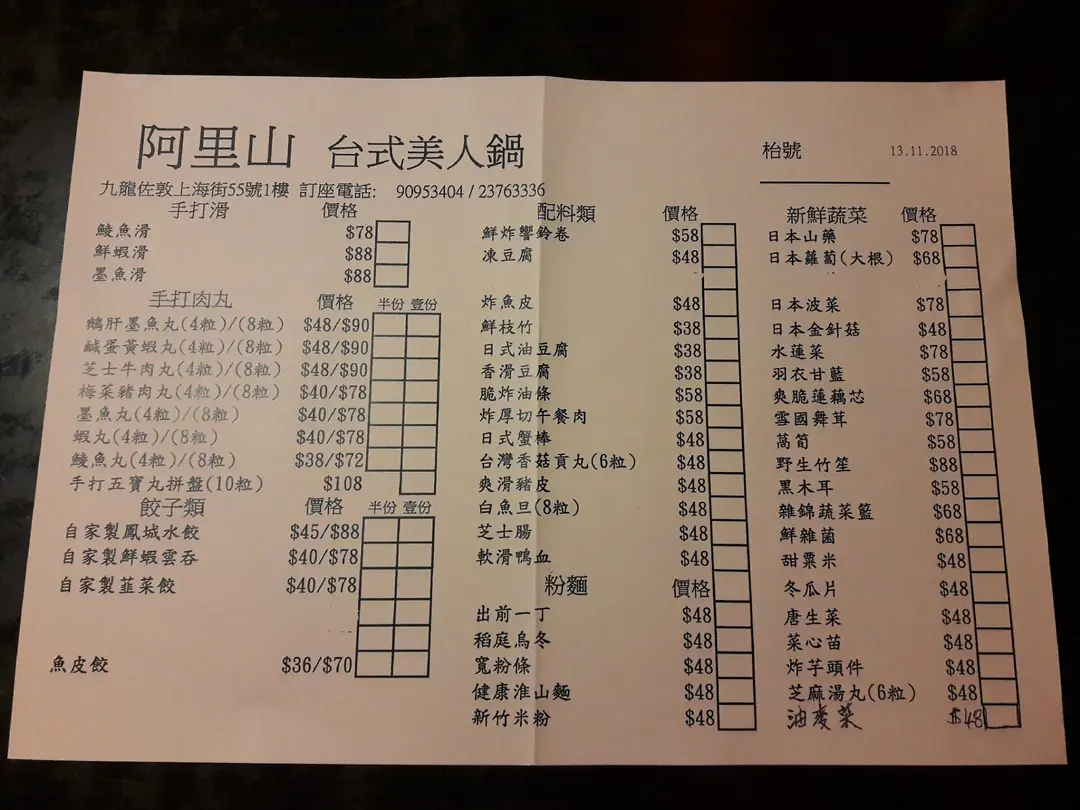 阿里山 台式美人鍋
枱號 13.11.2018
九龍佐敦上海街55號1樓 訂座電話: 90953404 / 23763336
手打滑 價格
鯪魚滑 $78
鮮蝦滑 $88
墨魚滑 $88
手打肉丸 價格 半份 壹份
鵝肝墨魚丸(4粒)/(8粒) $48/$90
鹹蛋黃蝦丸(4粒)/(8粒) $48/$90
芝士牛肉丸(4粒)/(8粒) $48/$90
梅菜豬肉丸(4粒)/(8粒) $40/$78
墨魚丸(4粒)/(8粒) $40/$78
蝦丸(4粒)/(8粒) $40/$78
鯪魚丸(4粒)/(8粒) $38/$72
手打五寶丸拼盤(10粒) $108
餃子類 價格 半份 壹份
自家製鳳城水餃 $45/$88
自家製鮮蝦雲吞 $40/$78
自家製韮菜餃 $40/$78
魚皮餃 $36/$70
配料類 價格
鮮炸響鈴卷 $58
凍豆腐 $48
炸魚皮 $48
鮮枝竹 $38
日式油豆腐 $38
香滑豆腐 $38
脆炸油條 $58
炸厚切午餐肉 $58
日式蟹棒 $48
台灣香菇貢丸(6粒) $48
爽滑豬皮 $48
白魚旦(8粒) $48
芝士腸 $48
軟滑鴨血 $48
粉麵 價格
出前一丁 $48
稻庭烏冬 $48
寬粉條 $48
健康淮山麵 $48
新竹米粉 $48
新鮮蔬菜 價格
日本山藥 $78
日本蘿蔔(大根) $68
日本波菜 $78
日本金針菇 $48
水蓮菜 $78
羽衣甘藍 $58
爽脆蓮藕芯 $68
雪國舞茸 $78
萵筍 $58
野生竹笙 $88
黑木耳 $58
雜錦蔬菜籃 $68
鮮雜菌 $68
甜粟米 $48
冬瓜片 $48
唐生菜 $48
菜心苗 $48
炸芋頭件 $48
芝麻湯丸(6粒) $48
油麥菜 $48